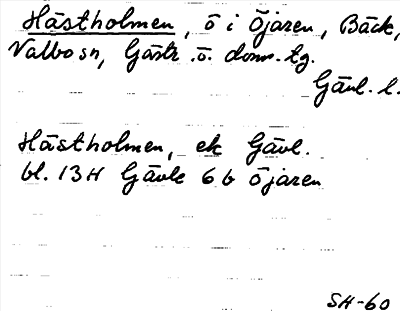 Hästholmen, ö i Öjaren, Bäck,
Valbo sn, Gästr. ö. doms. tg.
Gävl. l.
Hästholmen, ek Gävl.
bl. 13H Gävle 6b Öjaren
SH-60